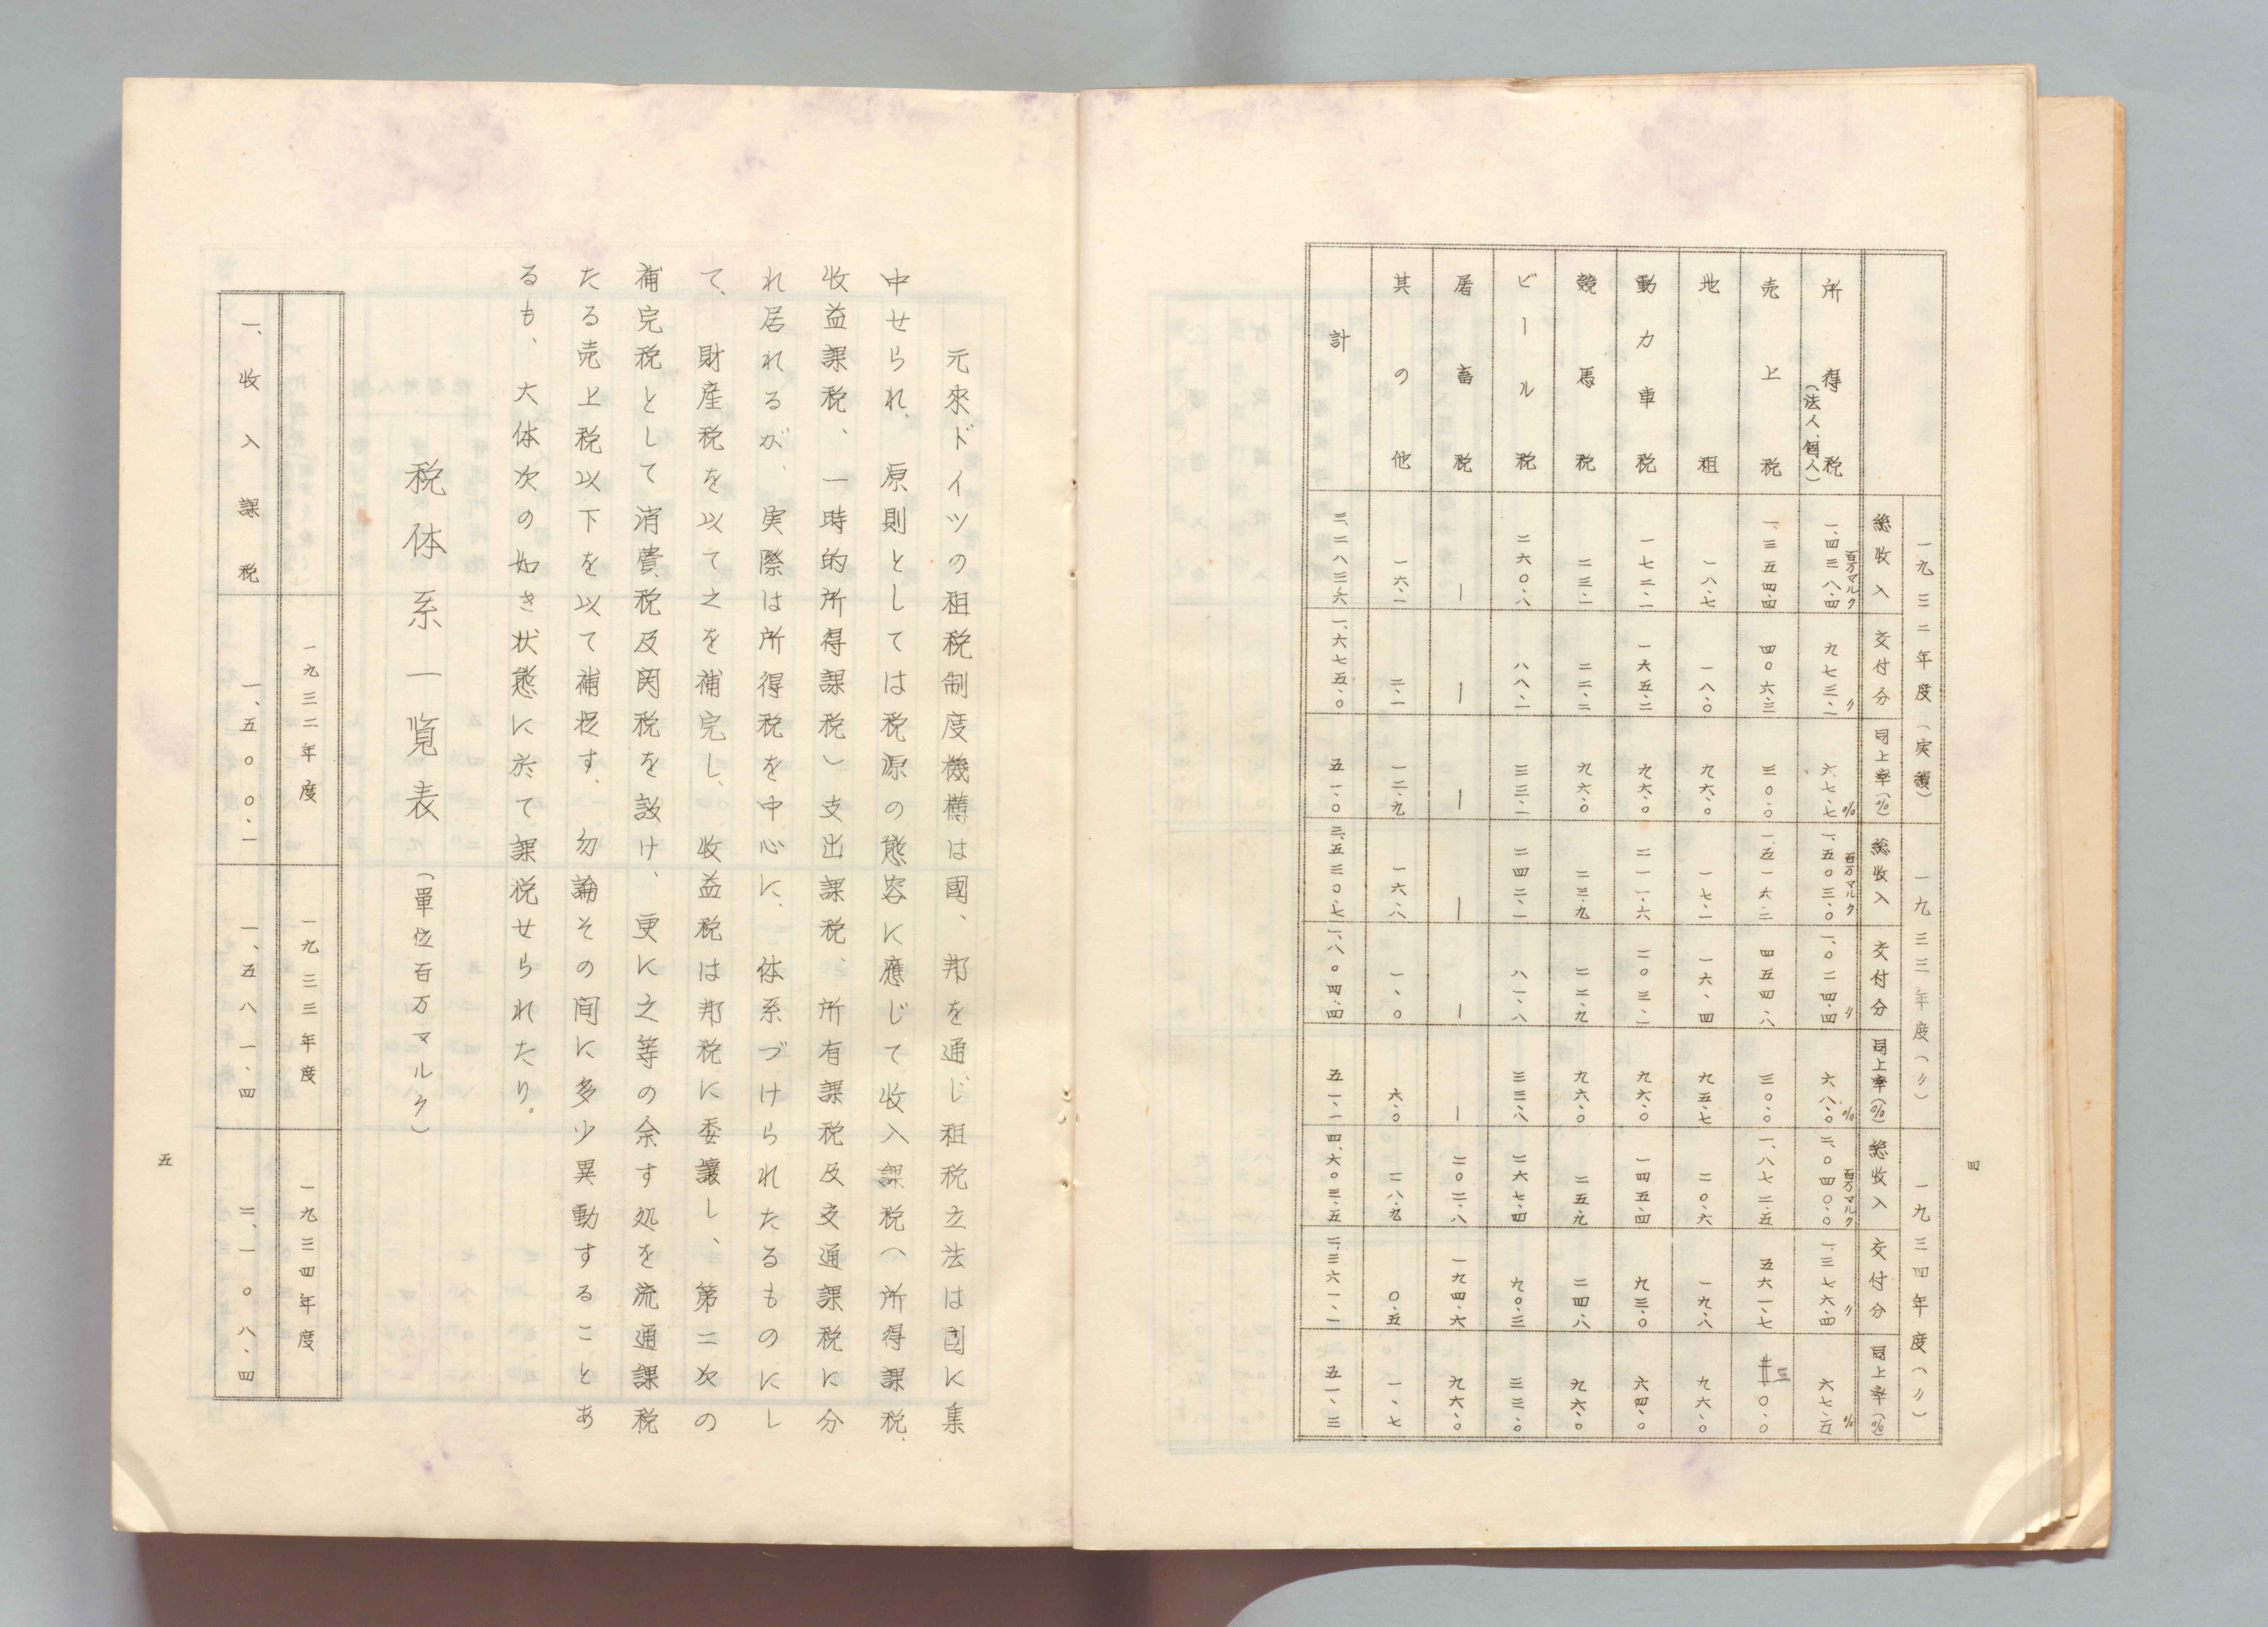 四
一九三二年度(実績) 一九三三年度(〃) 一九三四年度(〃)
総收入 交付分 同上率(%) 総收入 交付分 同上率(%) 総收入 交付分 同上率(%)
所得税(法人、個人) 百万マルク 一、四三八・四 〃 九七三・一 % 六七・七 百万マルク 一、五〇三・〇 〃 一、〇二四・四 % 六八・〇 百万マルク 二、〇四〇・〇 〃 一、三七六・四 % 六七・五
売上税 一、三五四・四 四〇六・三 三〇・〇 一、五一六・二 四五四・八 三〇・〇 一、八七二・五 五六一・七 三〇・〇
地租 一八・七 一八・〇 九六・〇 一七・一 一六・四 九五・七 二〇・六 一九・八 九六・〇
動力車税 一七二・一 一六五・二 九六・〇 二一一・六 二〇三・一 九六・〇 一四五・四 九三・〇 六四・〇
競馬税 二三・一 二二・二 九六・〇 二三・九 二二・九 九六・〇 二五・九 二四・八 九六・〇
ビール税 二六〇・八 八八・一 三三・一 二四二・一 八一・八 三三・八 二六七・四 九〇・三 三三・〇
屠畜税 ― ― ― ― ― ― 二〇二・八 一九四・六 九六・〇
其の他 一六・一 二・一 一二・九 一六・八 一・〇 六・〇 二八・九 〇・五 一・七
計 三、二八三・六 一、六七五・〇 五一・〇 三、五三〇・七 一、八〇四・四 五一・一 四、六〇三・五 二、三六一・一 五一・三
元來ドイツの租税制度機構は國、邦を通じ租税立法は国に集
中せられ、原則としては税源の態容に應じて收入課税(所得課税、
收益課税、一時的所得課税)支出課税、所有課税及交通課税に分
れ居れるが、実際は所得税を中心に、体系づけられたるものにし
て、財産税を以て之を補完し、收益税は邦税に委讓し、第二次の
補完税として消費税及関税を設け、更に之等の余す処を流通課税
たる売上税以下を以て補捉す、勿論その間に多少異動することあ
るも、大体次の如き状態に於て課税せられたり。
税体系一覧表(單位百万マルク)
一九三二年度 一九三三年度 一九三四年度
一、收入課税 一、五〇〇・一 一、五八一・四 二、一〇八・四
五